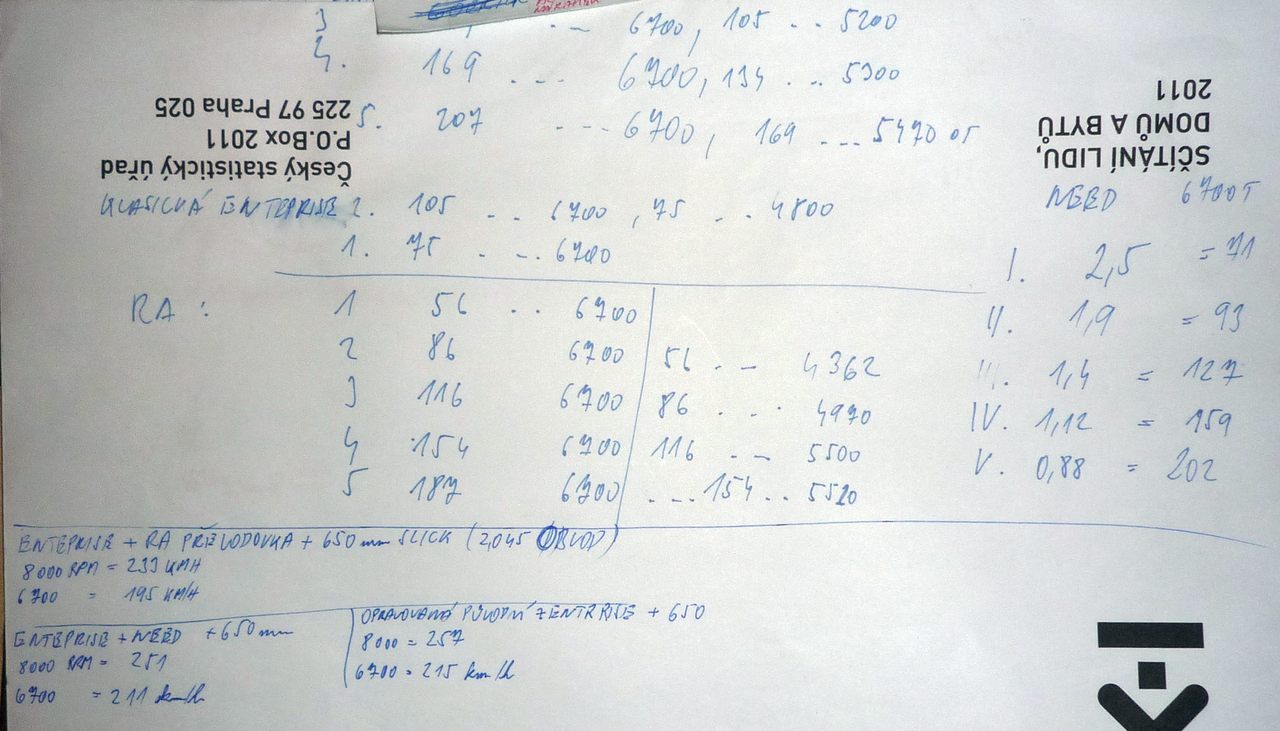 3 .. -- 6700, 105 .. 5200
4. 169 ... 6700, 134 .. 5300
5. 207 --- 6700, 169 ... 5470 ot
Český statistický úřad
P.O.Box 2011
225 97 Praha 025
SČÍTÁNÍ LIDU,
DOMŮ A BYTŮ
2011
KLASICKÁ ENTEPRISE 2. 105 .. 6700, 75 .. 4800
1. 75 . -.. 6700
RA: 1 56 .. 6700
2 86 6700 56 . - 4362
3 116 6700 86 . .. 4970
4 154 6700 116 .. 5500
5 187 6700 ... 154 .. 5520
NEED 6700T
I. 2,5 = 71
II. 1,9 = 93
III. 1,4 = 127
IV. 1,12 = 159
V. 0,88 = 202
ENTEPRISE + RA PŘEVODOVKA + 650mm SLICK (2,045 OBVOD)
8000 RPM = 233 KMH
6700 = 195 KM/H
ENTEPRISE + NEED + 650mm
8000 RPM = 251
6700 = 211 km/h
OPRACOVANÁ PŮVODNÍ Z ENTRPRISE + 650
8000 = 257
6700 = 215 km/h